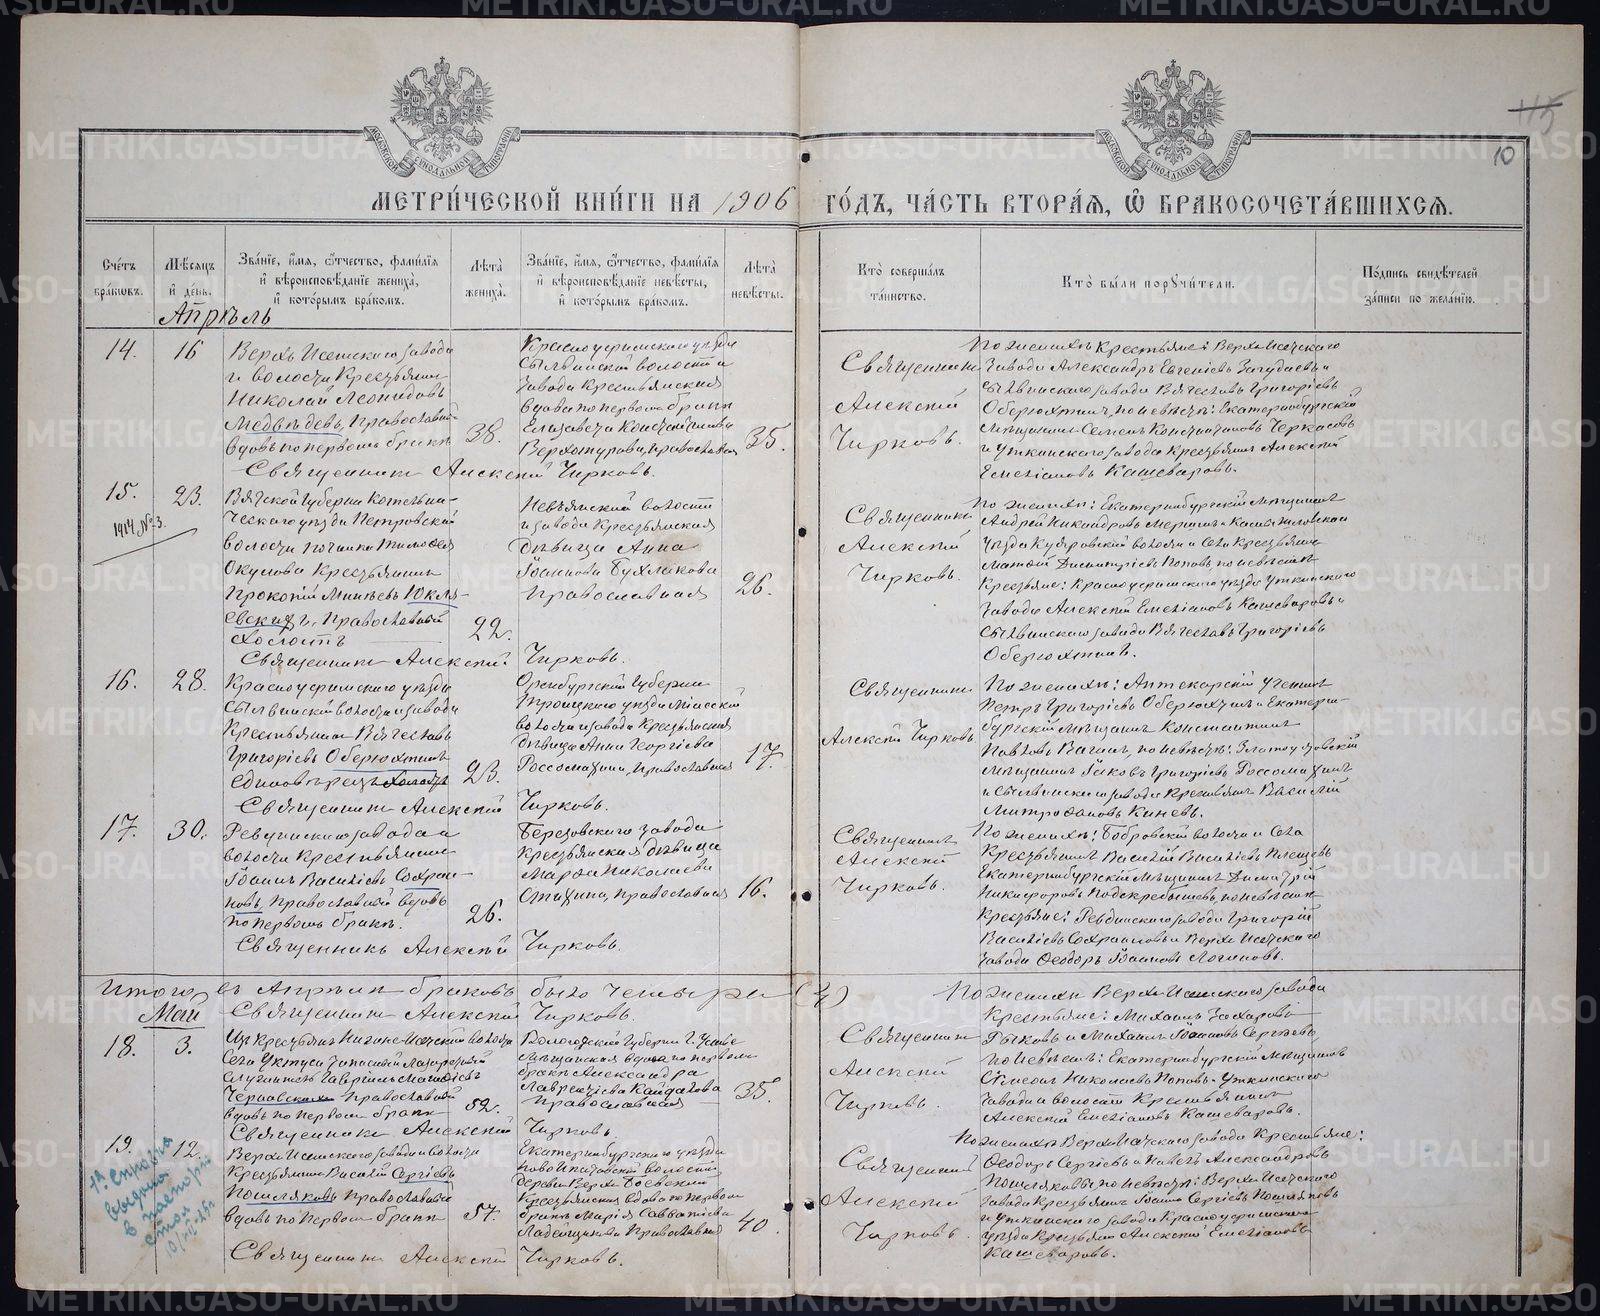 115
10
МОСКОВСКОЙ СѴНОДАЛЬНОЙ ТИПОГРАФІИ
МОСКОВСКОЙ СѴНОДАЛЬНОЙ ТИПОГРАФІИ
МЕТРИ́ЧЕСКОЙ КНИ́ГИ НА 1906 ГО́ДЪ, ЧА́СТЬ ВТОРА́Ѧ, Ѽ БРАКОСОЧЕТА́ВШИХСѦ.
Сче́тъ бра́ковъ.
Мѣ́сяцъ и҆ де́нь.
Зва́нїе, и҆́мѧ, ѻ҆́тчество, фами́лїѧ и҆ вѣроисповѣ́данїе жениха̀, и҆ кото́рымъ бра́комъ.
Лѣ́та жениха̀.
Зва́нїе, и҆́мѧ, ѻ҆́тчество, фами́лїѧ и҆ вѣроисповѣ́данїе невѣ́сты, и҆ кото́рымъ бра́комъ.
Лѣ́та невѣ́сты.
Кто̀ соверша́лъ та́инство.
Кто̀ бы́ли порꙋчи́тели.
По́дпись свидѣ́телей за́писи по жела́нїю.
Апрѣль
14.
16
Верхъ Исетскаго завода
и волости Крестьянинъ
Николай Леонидовъ
Медвѣдевъ, Православный
вдовъ по первомъ бракѣ
38.
Красноуфимскаго уѣзда
Сылвинской волости и
завода Крестьянская
вдова по первомъ бракѣ
Елизавета Константинова
Верхотурова, православная
35.
Священникъ Алексѣй Чирковъ.
Священникъ
Алексѣй
Чирковъ.
По женихѣ Крестьяне: Верхъ Исетскаго
завода Александръ Евгеніевъ и
Сылвинскаго завода Вячеславъ Григорьевъ
Оберюхтинъ, по невѣстѣ: Екатеринбургскій
мѣщанинъ Семенъ Константиновъ Черкасовъ
и Уткинскаго завода Крестьянинъ Алексѣй
Емеліановъ Кашеваровъ.
15.
23.
1914 №3.
Вятской губерніи Котельни-
ческаго уѣзда Петровской
волости починка Тимофея
Окулова Крестьянинъ
Прокопій Юкля-
евскихъ, Православный
холостъ
22.
Невьянской волости
и завода Крестьянская
дѣвица Анна
Іоаннова Бухлякова
Православная
26.
Священникъ Алексѣй Чирковъ.
Священникъ
Алексѣй
Чирковъ.
По женихѣ: Екатеринбургскій мѣщанинъ
Андрей Никандровъ и Камышловскаго
уѣзда Куяровской волости и села Крестьянинъ
Димитріевъ Поповъ, по невѣстѣ
Крестьяне: Красноуфимскаго уѣзда Уткинскаго
завода Алексѣй Емеліановъ Кашеваровъ и
Сылвинскаго завода Вячеславъ Григорьевъ
Оберюхтинъ.
16.
28.
Красноуфимскаго уѣзда
Сылвинской волости и завода
Крестьянинъ Вячеславъ
Григорьевъ Оберюхтинъ
единовѣрецъ холостъ
23.
Оренбургской губерніи
Троицкаго уѣзда Міасской
волости и завода Крестьянская
дѣвица Анна Георгіева
Россомахина, православная
17.
Священникъ Алексѣй Чирковъ.
Священникъ
Алексѣй Чирковъ
По женихѣ: Аптекарскій ученикъ
Петръ Григорьевъ Оберюхтинъ и Екатерин-
бургскій мѣщанинъ Константинъ
Павловъ Вагинъ, по невѣстѣ: Златоустовскій
мѣщанинъ Іаковъ Григорьевъ Россомахинъ
и Сылвинскаго завода Крестьянинъ Василій
Митрофановъ Киневъ.
17.
30.
Ревдинскаго завода и
волости Крестьянинъ
Іоаннъ Васильевъ Сохран-
новъ, Православный вдовъ
по первомъ бракѣ.
26.
Березовскаго завода
Крестьянская дѣвица
Марфа Николаева
православная
16.
Священникъ Алексѣй Чирковъ.
Священникъ
Алексѣй
Чирковъ.
По женихѣ: Бобровской волости и села
Крестьянинъ Василій Васильевъ Плещевъ
Екатеринбургскій мѣщанинъ Димитрій
Никифоровъ Подскребышевъ, по невѣстѣ
Крестьяне: Ревдинскаго завода Григорій
Васильевъ Сохранновъ и Верхъ Исетскаго
завода Ѳеодоръ Іоанновъ Логиновъ.
Итого въ Апрѣлѣ браковъ было четыре (4)
Священникъ Алексѣй Чирковъ.
Май
18.
3.
Изъ Крестьянъ Нижне-Исетской волости
села Уктуса запасный лазаретный
служитель Гавріилъ
Чернавскихъ Православный
вдовъ по первомъ бракѣ
52.
Вологодской губерніи г.
мѣщанская вдова по первомъ
бракѣ Александра
Лаврентіева Кайдалова
Православная
35.
Священникъ Алексѣй Чирковъ
Священникъ
Алексѣй
Чирковъ.
По женихѣ Верхъ Исетскаго завода
Крестьяне: Михаилъ Захаровъ
Рыковъ и Михаилъ Іоанновъ Сергѣевъ,
по невѣстѣ: Екатеринбургскій мѣщанинъ
Симеонъ Николаевъ Поповъ и Уткинскаго
завода и волости Крестьянинъ
Алексѣй Емеліановъ Кашеваровъ.
19.
12.
Верхъ Исетскаго завода и волости
Крестьянинъ Василій Сергіевъ
Пошляковъ Православный
вдовъ по первомъ бракѣ
57.
Екатеринбургскаго уѣзда
волости,
деревни Верхъ Боевской
Крестьянская вдова по первомъ
бракѣ Марія Савватіева
Ладейщикова Православная
40
Священникъ Алексѣй Чирковъ.
Священникъ
Алексѣй
Чирковъ.
По женихѣ Верхъ Исетскаго завода Крестьяне:
Ѳеодоръ Сергіевъ и Павелъ Александровъ
Пошляковы, по невѣстѣ: Верхъ Исетскаго
завода Крестьянинъ Іоаннъ Сергіевъ Пошляковъ
и Уткинскаго завода Красноуфимскаго
уѣзда Крестьянинъ Алексѣй Емеліановъ
Кашеваровъ.
справка
выдана
в паспорт
стол
METRIKI.GASO-URAL.RU